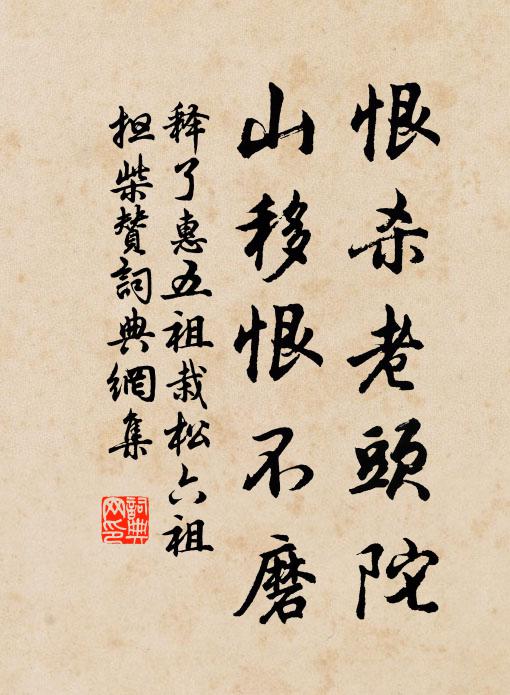 恨杀老頭陀
山移恨不磨
释了惠五祖栽松六祖
担柴赞詞典網集
詞典
网印